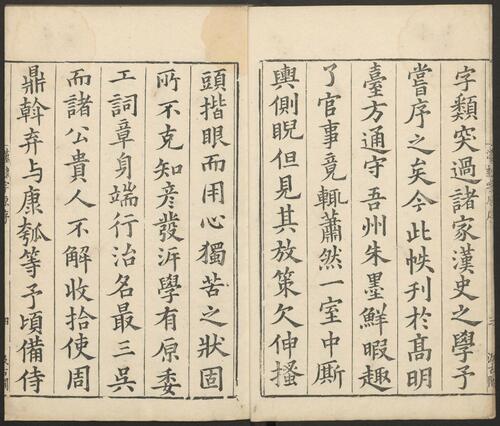 字類突過諸家漢史之學予
嘗序之矣今此帙刊於髙明
臺方通守吾州朱墨鮮暇趣
了官事竟輒蕭然一室中厮
輿側睨但見其放策欠伸搔
頭揩眼而用心獨苦之狀固
所不克知彦發泝學有原委
工詞章身端行治名最三吳
而諸公貴人不解收拾使周
鼎斡弃与康瓠等予頃備侍